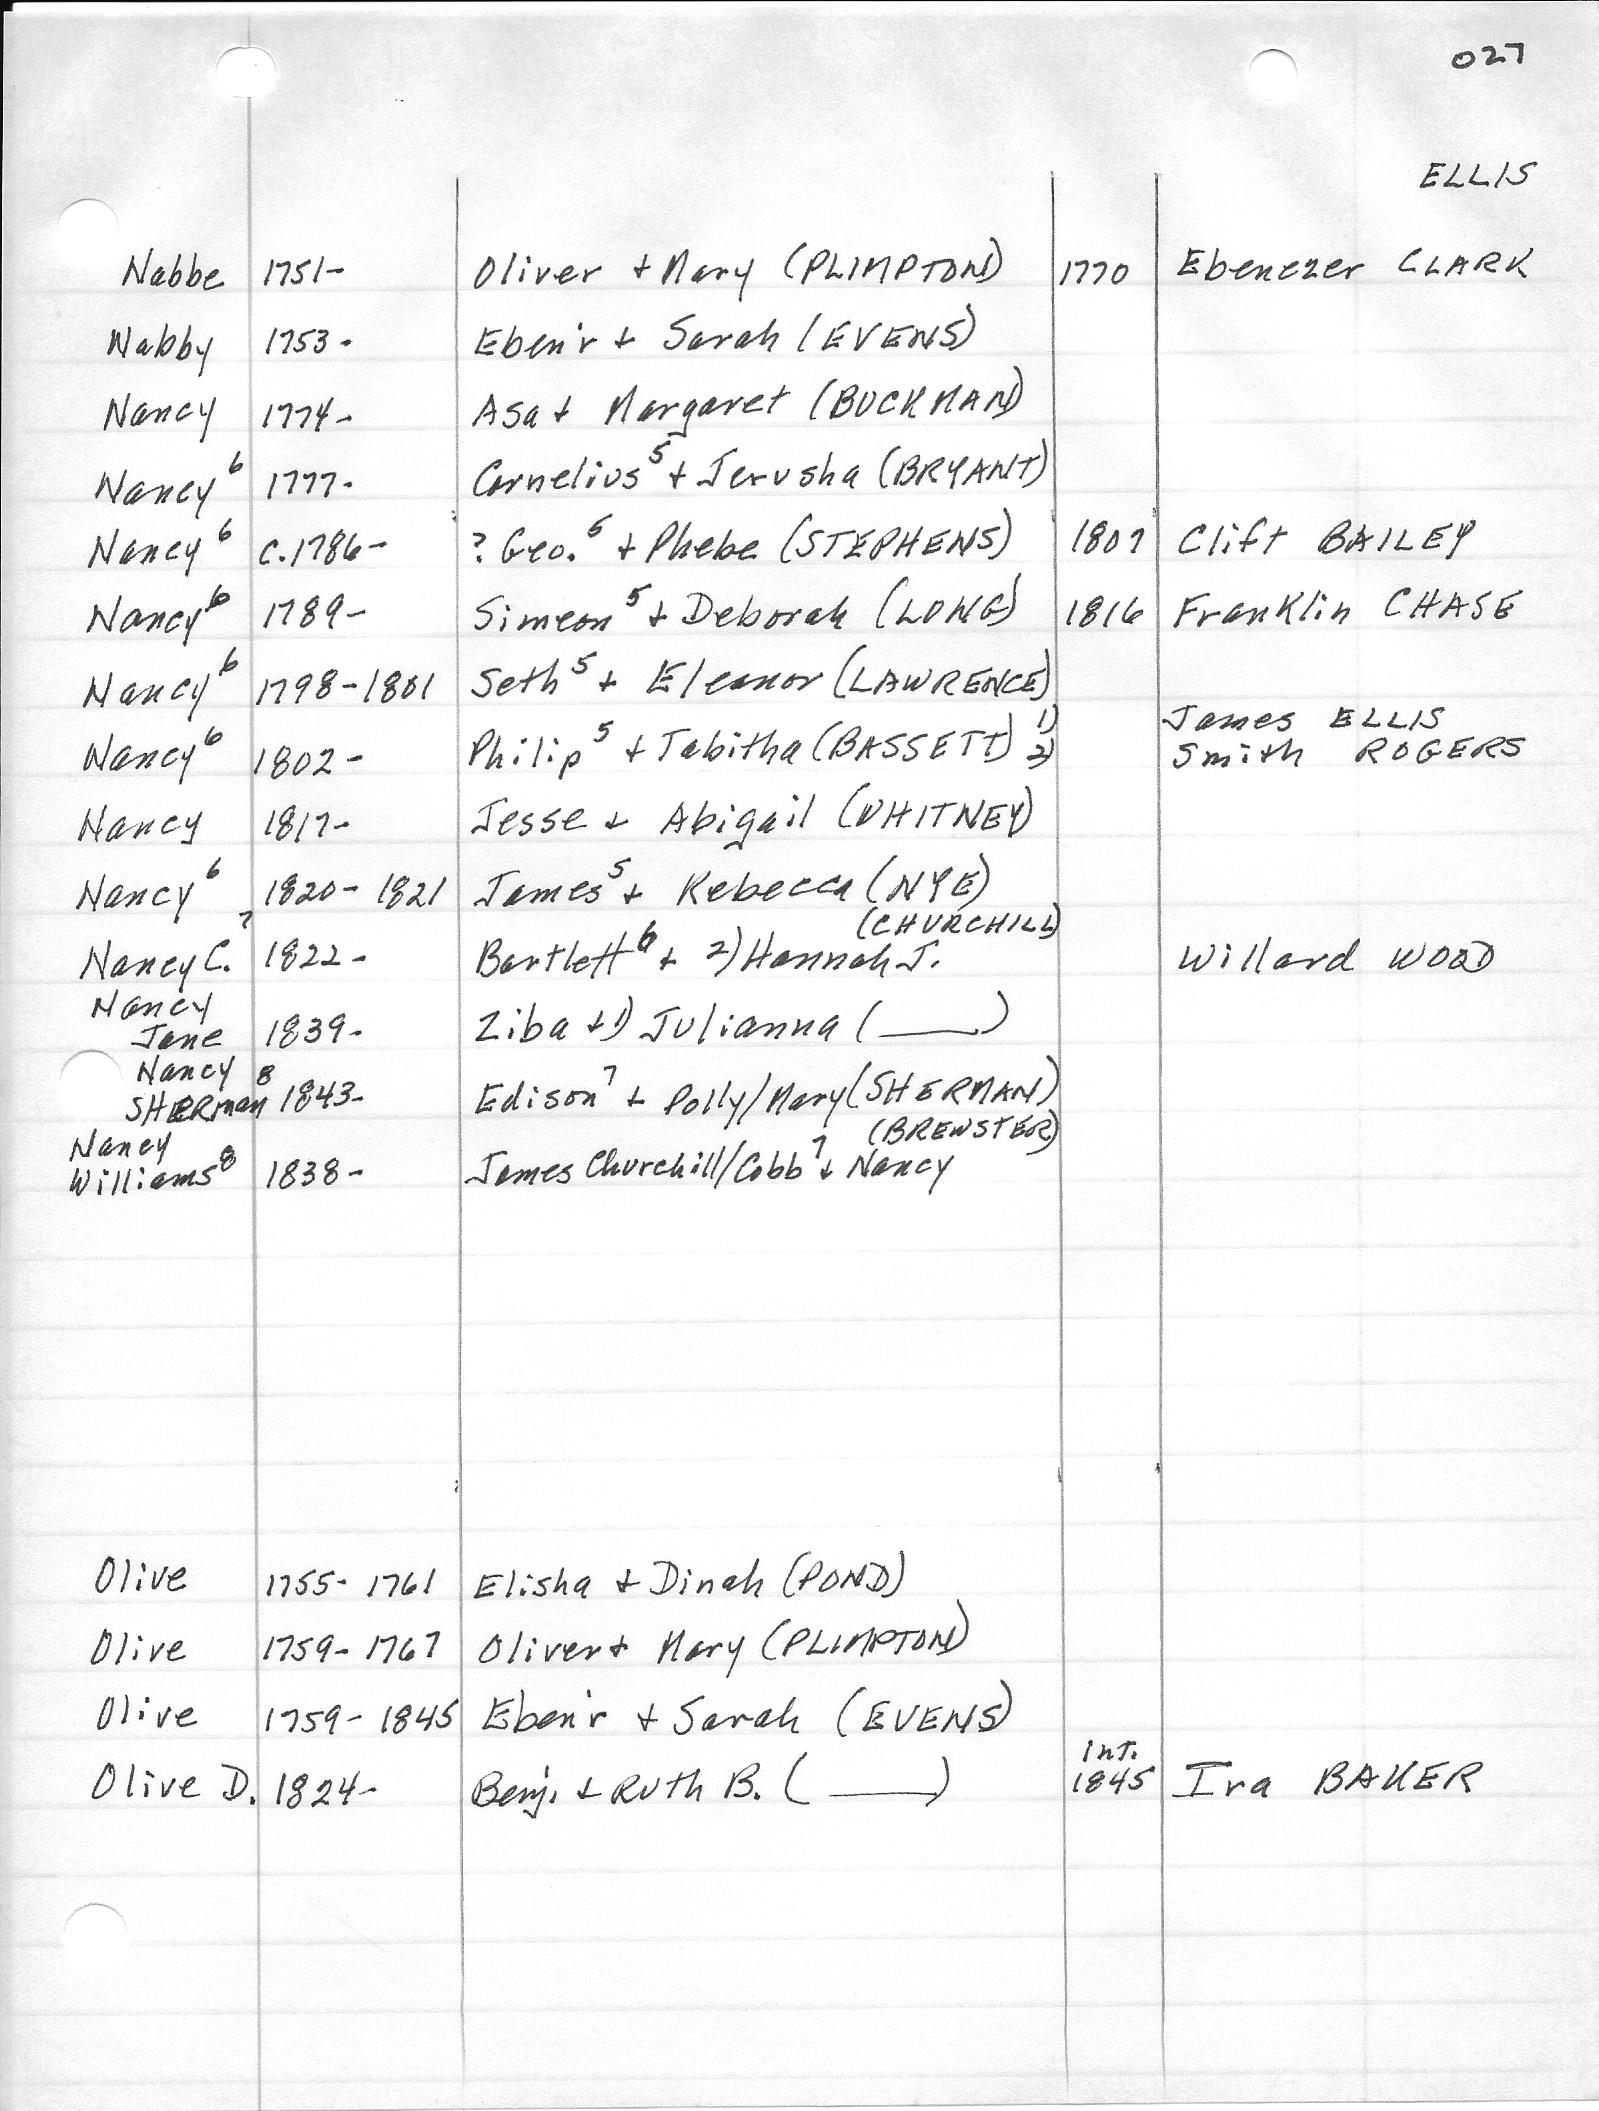 027
ELLIS
Nabbe 1751- Oliver + Mary (PLIMPTON) 1770 Ebenezer CLARK
Nabby 1753- Eben'r + Sarah (EVENS)
Nancy 1774- Asa + Margaret (BUCKMAN)
Nancy⁶ 1777- Cornelius⁵ + Jerusha (BRYANT)
Nancy⁶ c.1786- ? Geo.⁵ + Phebe (STEPHENS) 1807 Clift BAILEY
Nancy⁶ 1789- Simeon⁵ + Deborah (LONG) 1816 Franklin CHASE
Nancy⁶ 1798-1801 Seth⁵ + Eleanor (LAWRENCE)
Nancy⁶ 1802- Philip⁵ + Tabitha (BASSETT) 1) James ELLIS
2) Smith ROGERS
Nancy 1817- Jesse + Abigail (WHITNEY)
Nancy⁶ 1820-1821 James⁵ + Rebecca (NYE)
(CHURCHILL)
Nancy C.⁷ 1822- Bartlett⁶ + 2) Hannah J. Willard WOOD
Nancy
Jane 1839- Ziba + 1) Julianna (____)
Nancy
SHERman⁸ 1843- Edison⁷ + Polly/Mary (SHERMAN)
Nancy (BREWSTER)
Williams⁸ 1838- James Churchill/Cobb⁷ + Nancy
Olive 1755-1761 Elisha + Dinah (POND)
Olive 1759-1767 Oliver + Mary (PLIMPTON)
Olive 1759-1845 Eben'r + Sarah (EVENS)
Int.
Olive D. 1824- Benj. + Ruth B. (____) 1845 Ira BAKER